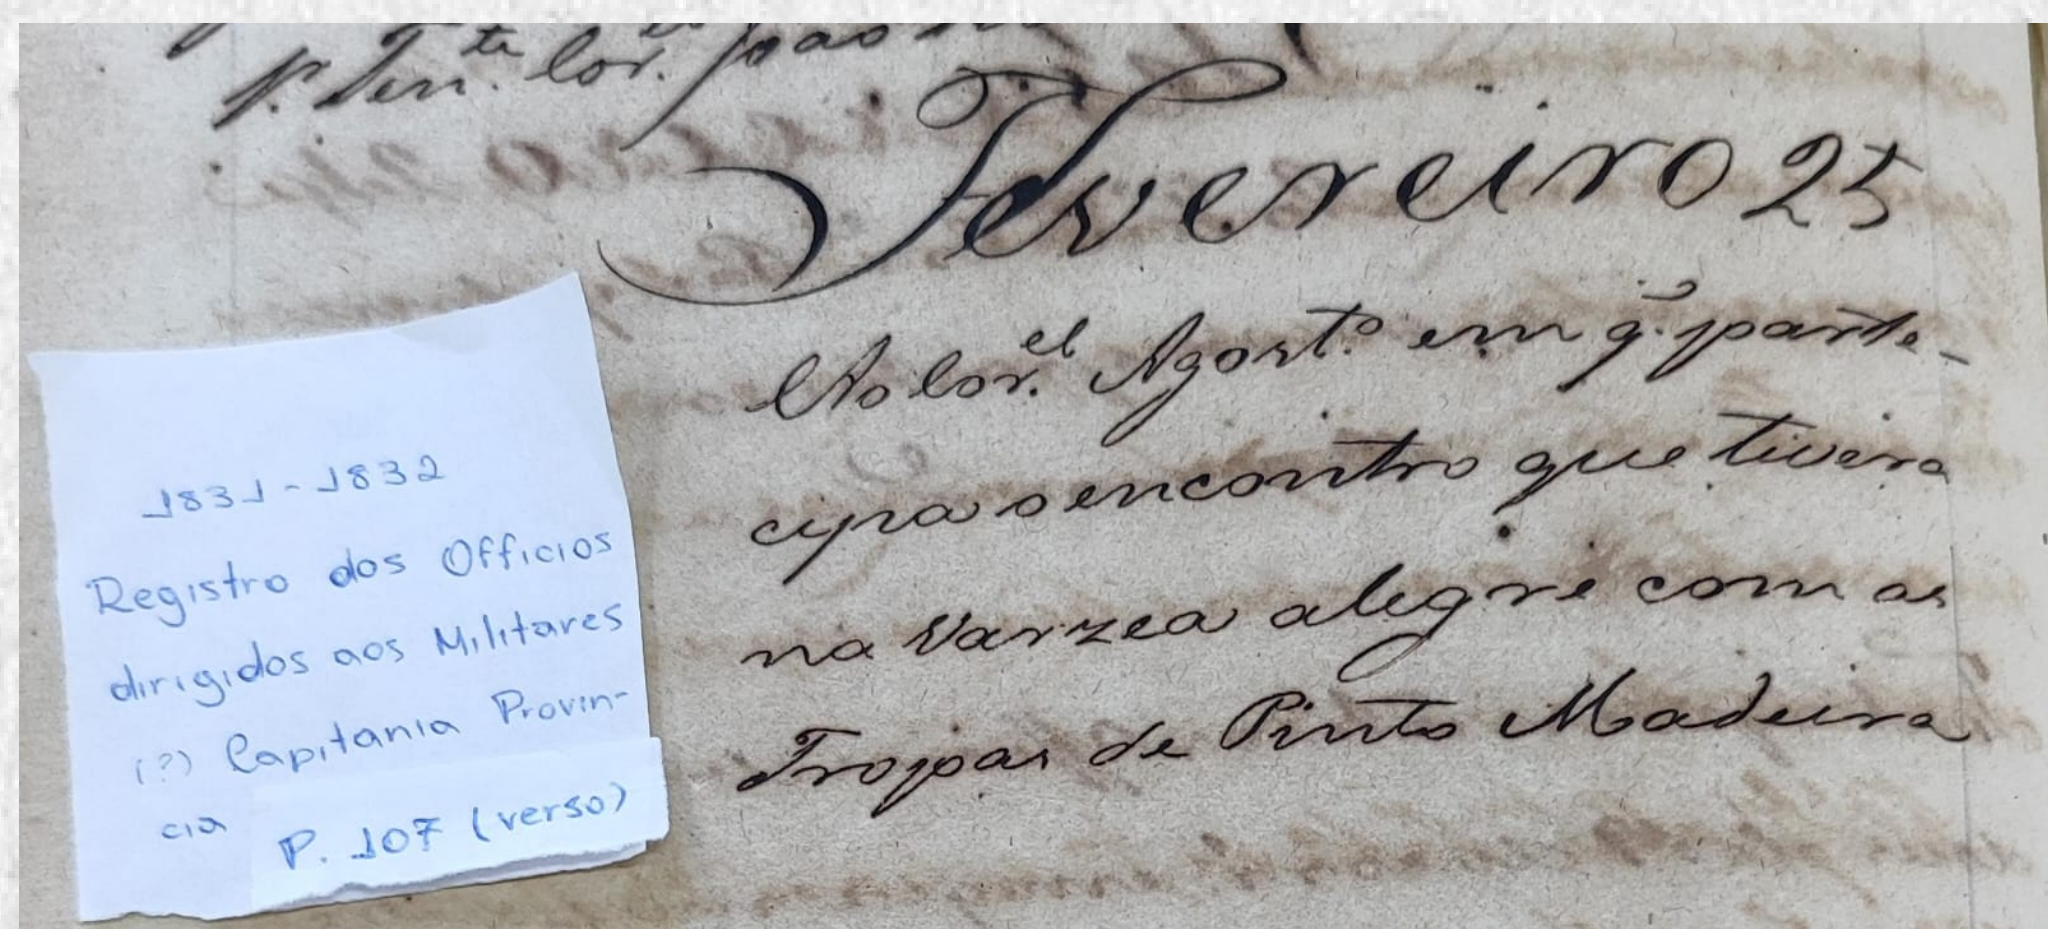 p. Ten.te Cor.el
Fevereiro 25
Ao Cor.el Agost.o em q. parte-
cipa o encontro que tivera
na Varzea alegre com as
Tropas de Pinto Madeira
1831-1832
Registro dos Officios
dirigidos aos Militares
(?) Capitania Provin-
cia
P. 107 (verso)